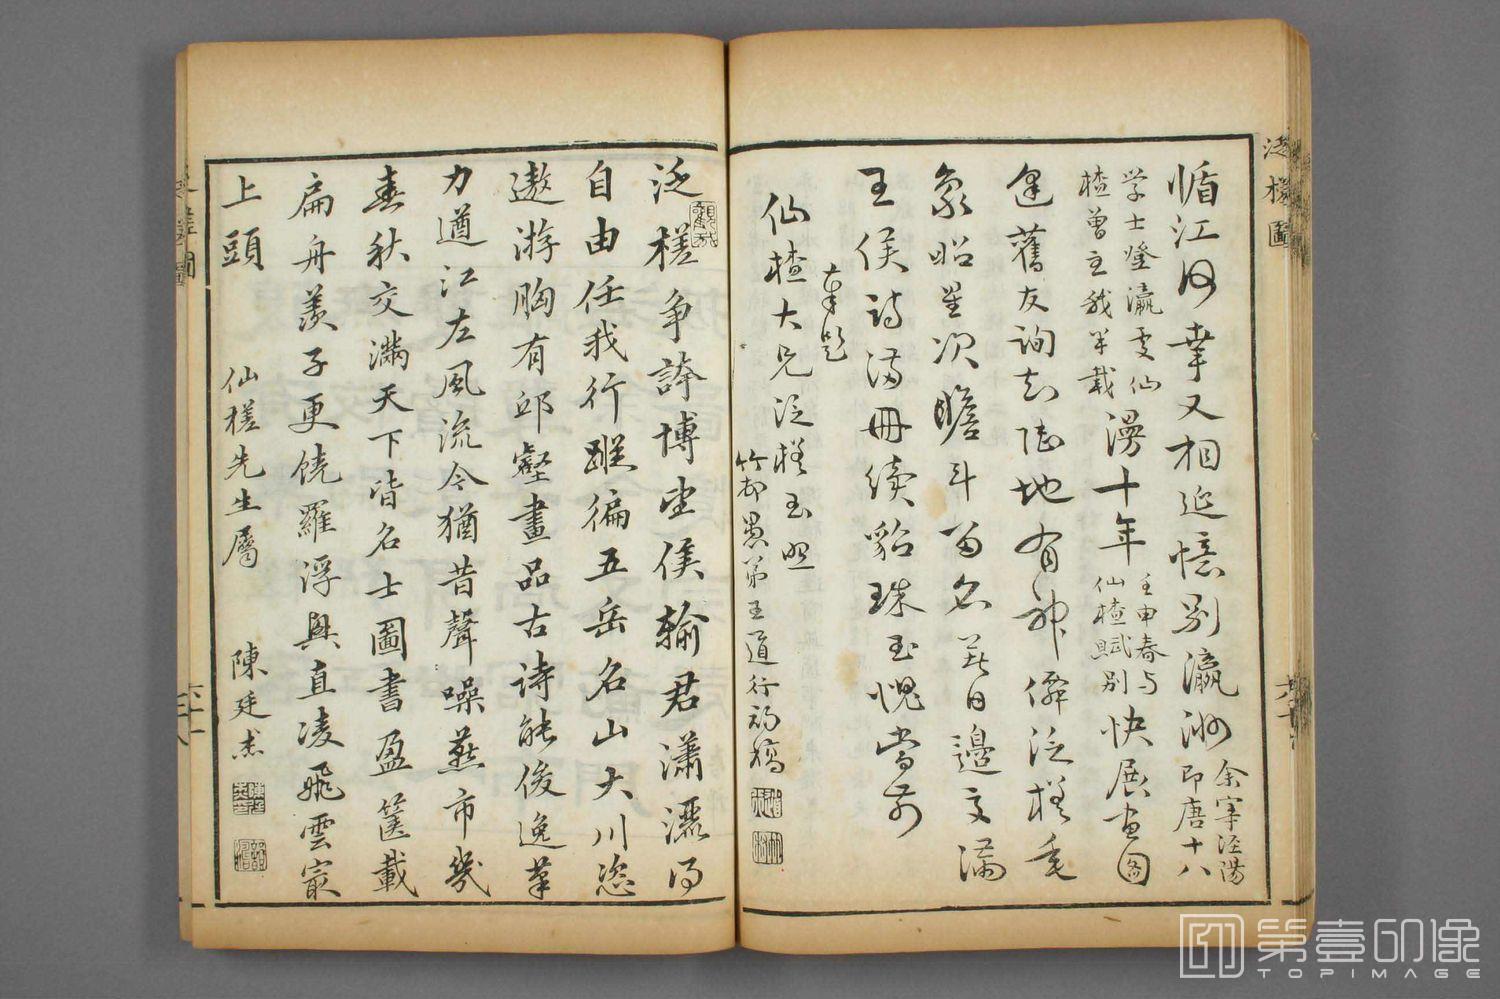 泛槎圖
循江河幸又相延憶別瀛洲余宰涇陽即唐十八
學士登瀛處仙槎曾主我半載漫十年壬申春与仙槎賦別快展畫圖
逢舊友詢知陸地有神僊泛槎
象昭星次瞻斗留名日邊交滿
王侯詩滿冊續貂珠玉愧當前
奉題
仙槎大兄泛槎玉照
竹邨愚弟王道行初稿
泛槎爭誇博望侯輸君瀟灑得
自由任我行蹤徧五岳名山大川恣
遨游胸有邱壑畫品古詩能俊逸筆
力遒江左風流今猶昔聲噪燕市幾
春秋交滿天下皆名士圖書盈篋載
扁舟羨子更饒羅浮興直凌飛雲最
上頭
仙槎先生屬
陳廷杰
第壹印像
TOPIMAGE